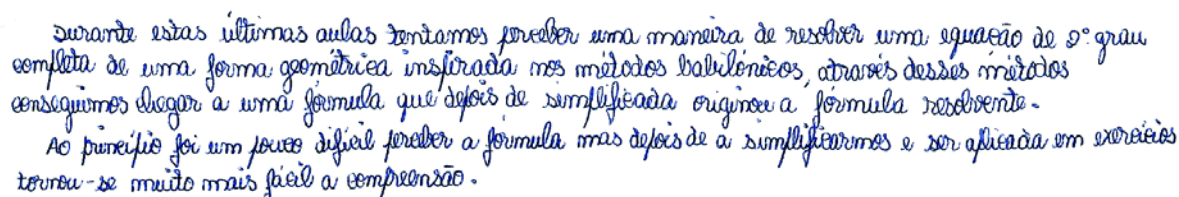 Durante estas últimas aulas tentamos perceber uma maneira de resolver uma equação de 2º grau
completa de uma forma geométrica inspirada nos métodos babilónicos, através desses métodos
conseguimos chegar a uma fórmula que depois de simplificada originou a fórmula resolvente.
Ao princípio foi um pouco difícil perceber a fórmula mas depois de a simplificarmos e ser aplicada em exercícios
tornou-se muito mais fácil a compreensão.